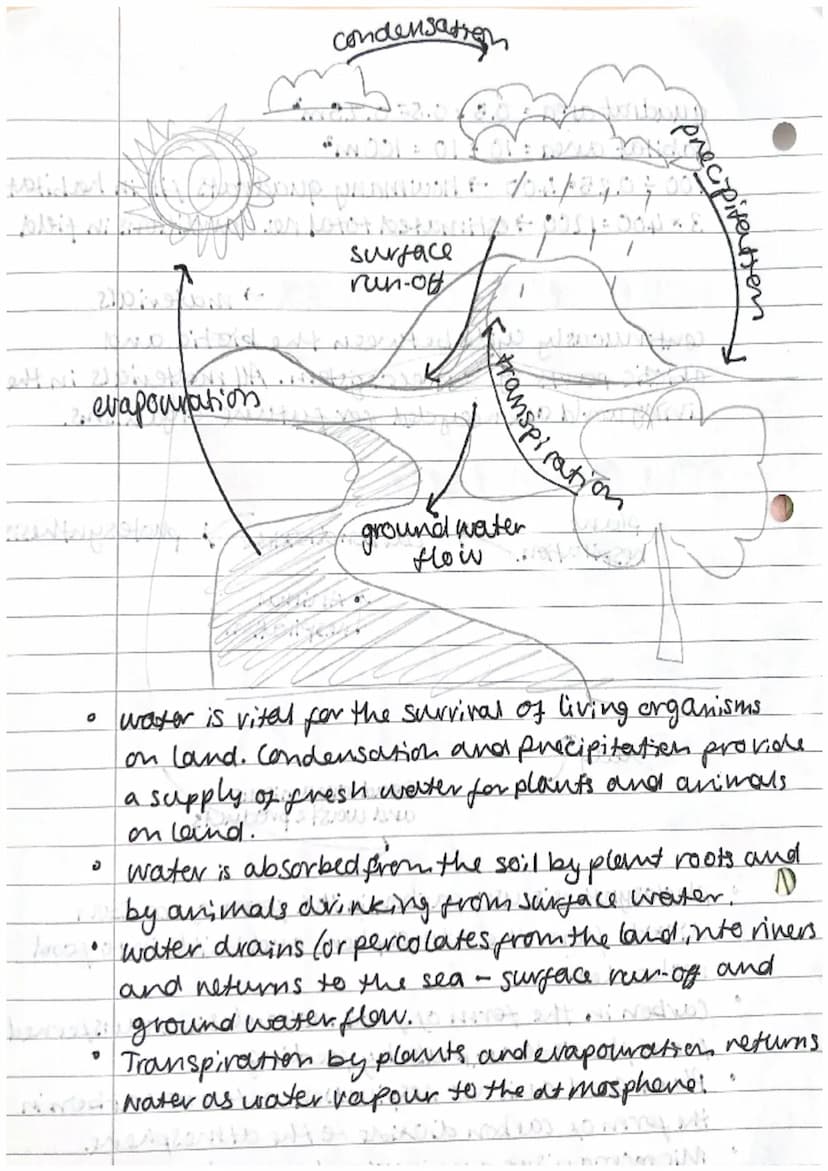 condensation
precipitation
surface
run-off
evapouration
transpiration
ground water
flow
• water is vital for the survival of living organisms
on land. Condensation and precipitation provide
a supply of fresh water for plants and animals
on land.
• water is absorbed from the soil by plant roots and
by animals drinking from surface water.
• water drains (or percolates from the land, into rivers
and returns to the sea - surface run-off and
ground water flow.
• Transpiration by plants and evapouration returns
water as water vapour to the atmosphere.